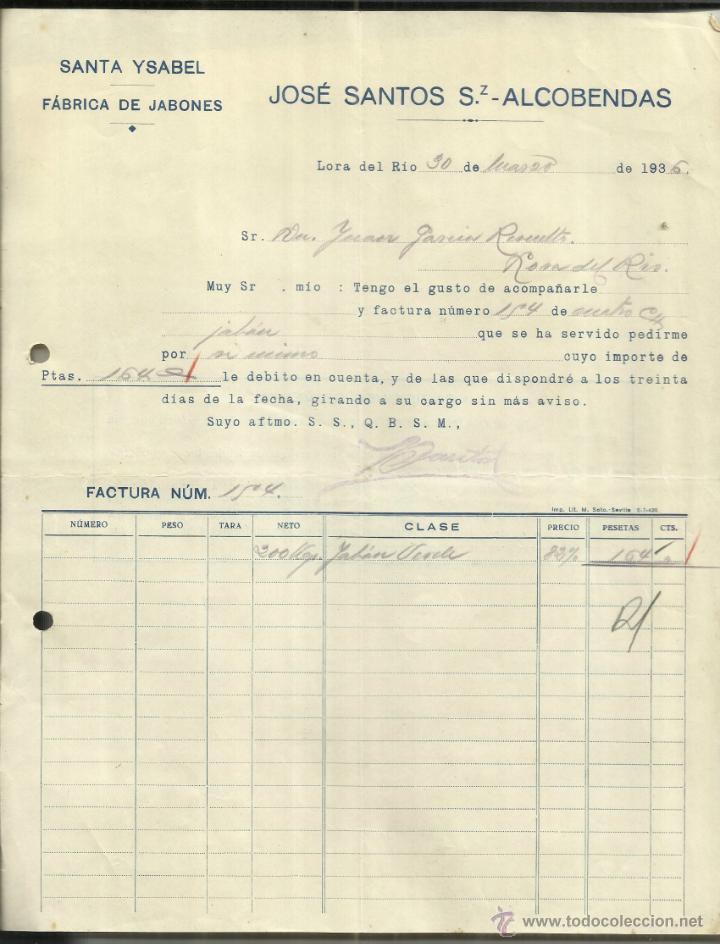 SANTA YSABEL
FÁBRICA DE JABONES
JOSÉ SANTOS S.Z-ALCOBENDAS
Lora del Río 30 de Marzo de 1936.
Sr. Dn. Juan García
Lora del Río.
Muy Sr. mío: Tengo el gusto de acompañarle
y factura número 154 de cuatro
jabón que se ha servido pedirme
por si mismo cuyo importe de
Ptas. 164 le debito en cuenta, y de las que dispondré a los treinta
días de la fecha, girando a su cargo sin más aviso.
Suyo aftmo. S. S., Q. B. S. M.,
J Santos
FACTURA NÚM. 154.
Imp. Lit. M. Soto.-Sevilla
NÚMERO PESO TARA NETO CLASE PRECIO PESETAS CTS.
200 Kgs. Jabón Verde 82% 164
www.todocoleccion.net